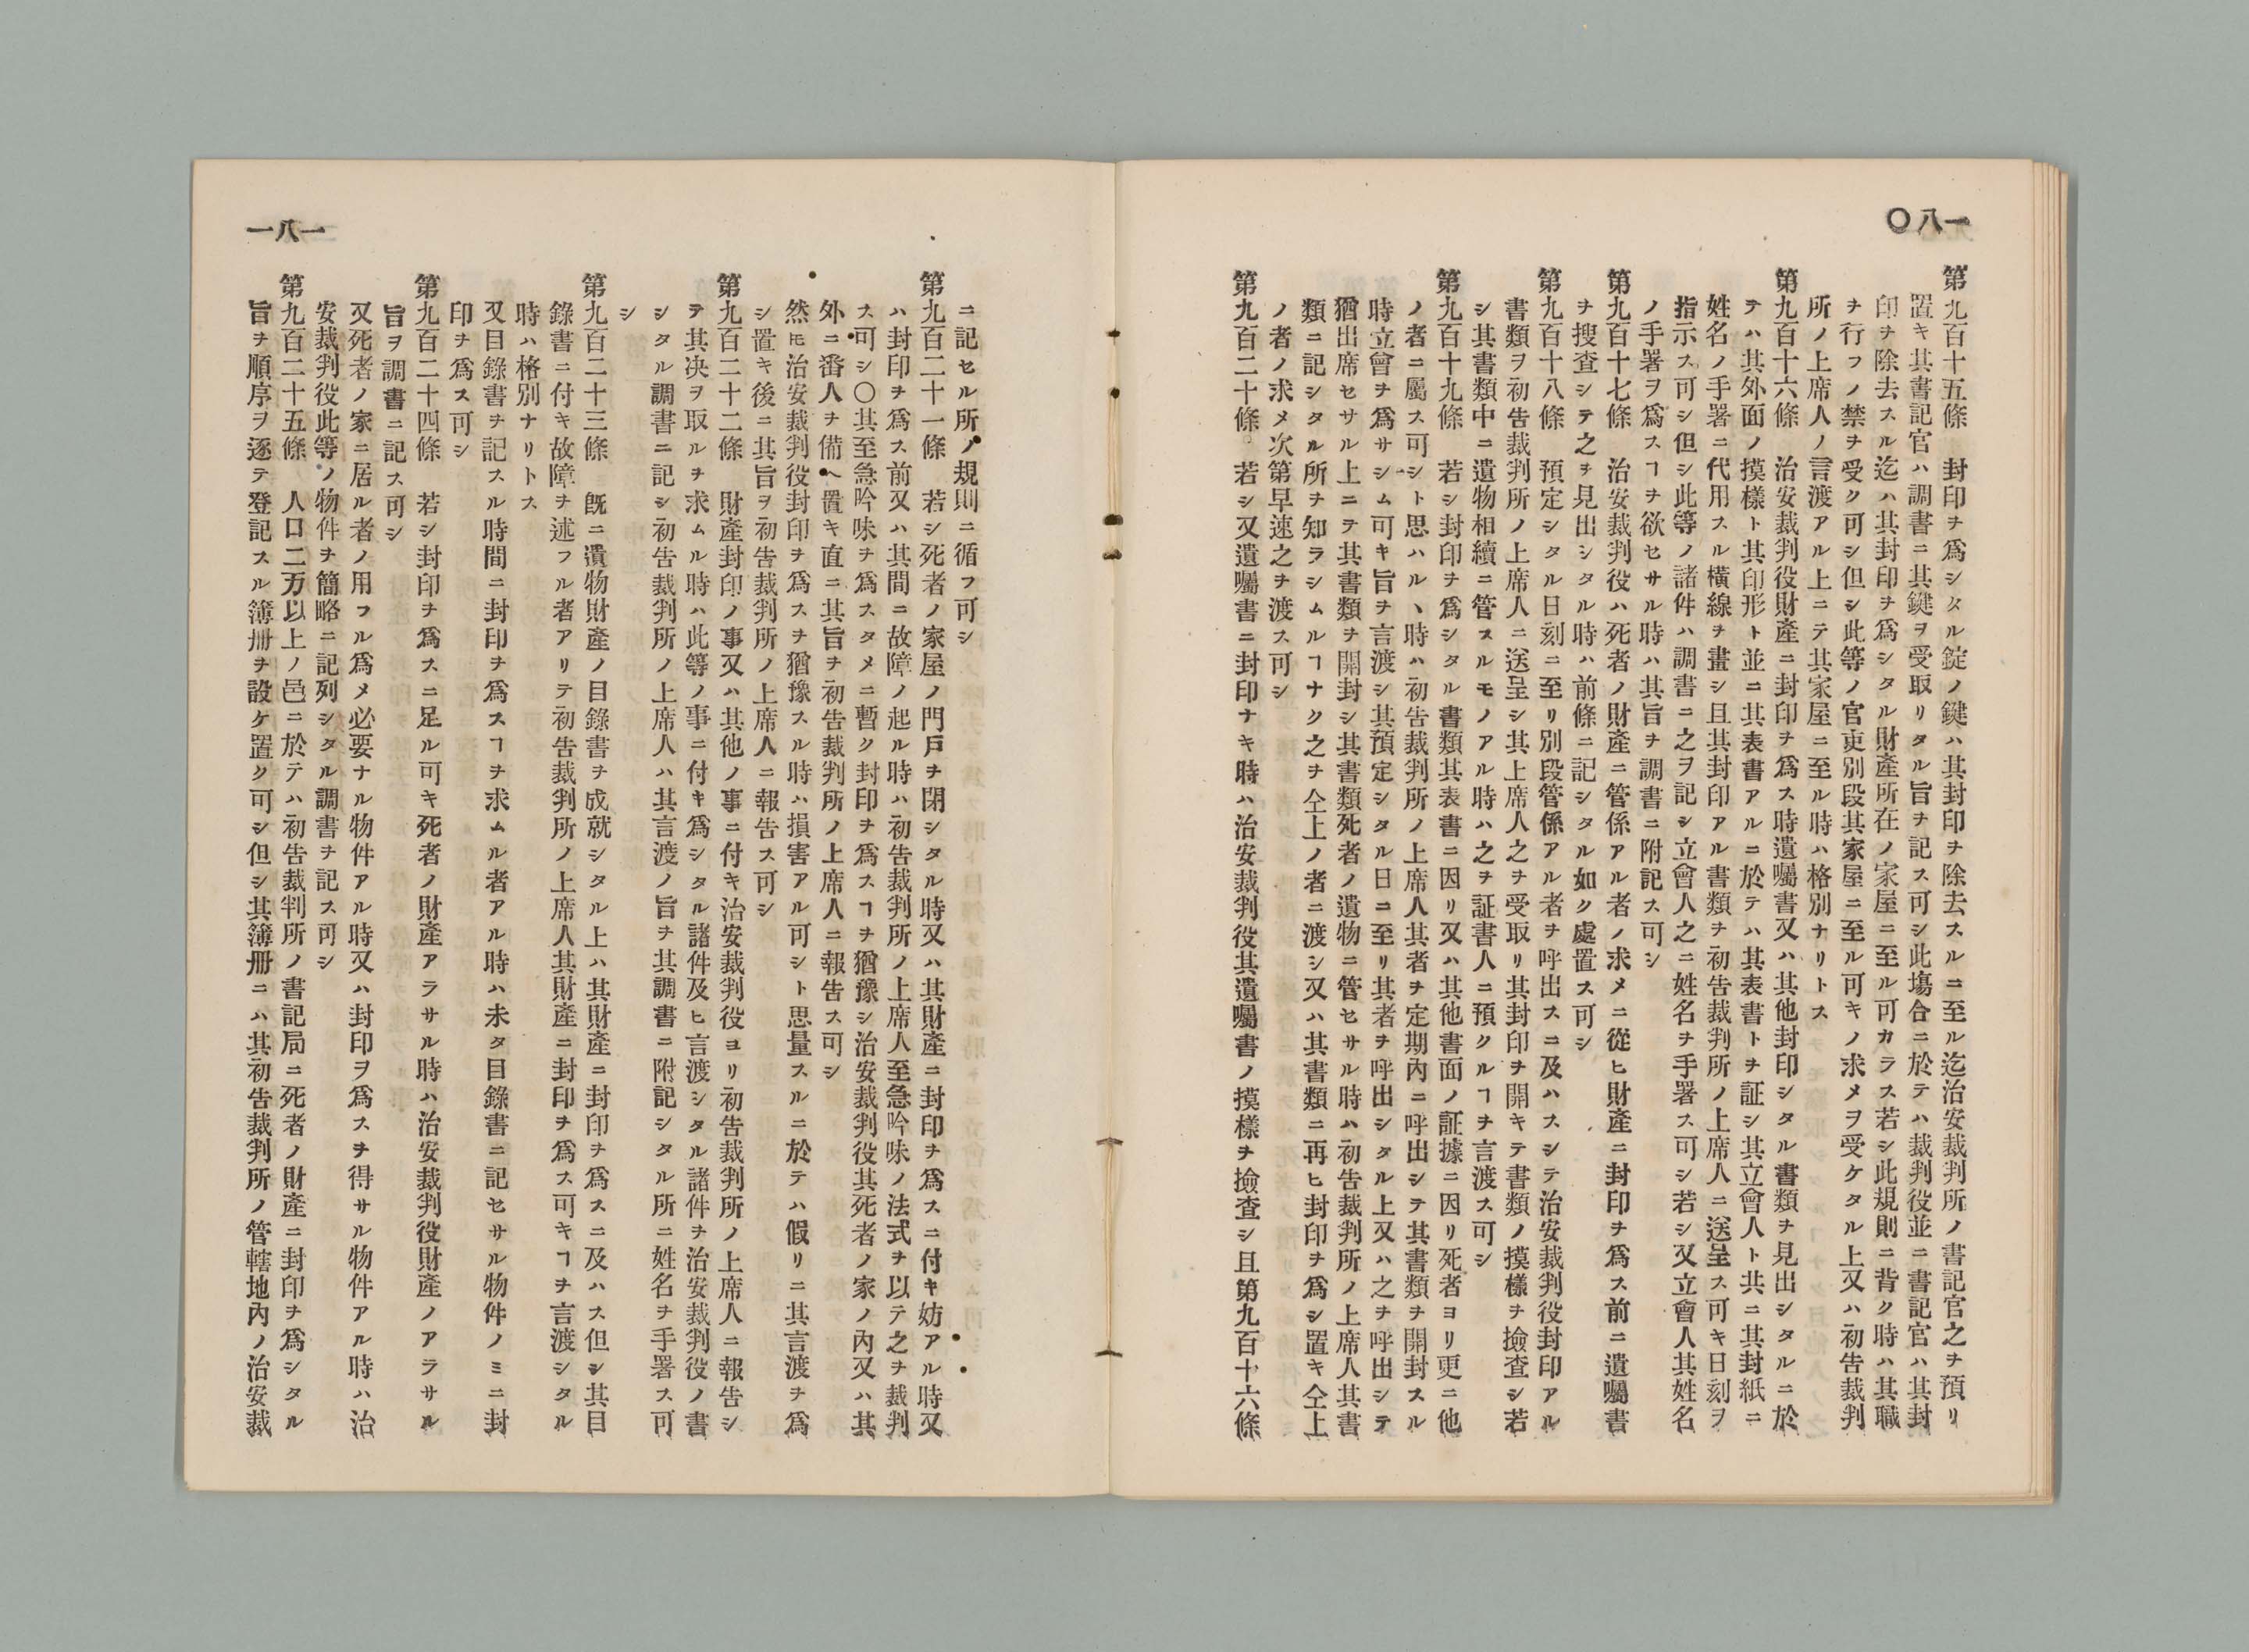 一八〇
第九百十五條　封印ヲ爲シタル錠ノ鍵ハ其封印ヲ除去スルニ至ル迄治安裁判所ノ書記官之ヲ預リ
置キ其書記官ハ調書ニ其鍵ヲ受取リタル旨ヲ記ス可シ此塲合ニ於テハ裁判役並ニ書記官ハ其封
印ヲ除去スル迄ハ其封印ヲ爲シタル財產所在ノ家屋ニ至ル可カラス若シ此規則ニ背ク時ハ其職
ヲ行フノ禁ヲ受ク可シ但シ此等ノ官吏別段其家屋ニ至ル可キノ求メヲ受ケタル上又ハ初告裁判
所ノ上席人ノ言渡アル上ニテ其家屋ニ至ル時ハ格別ナリトス
第九百十六條　治安裁判役財產ニ封印ヲ爲ス時遺囑書又ハ其他封印シタル書類ヲ見出シタルニ於
テハ其外面ノ摸樣ト其印形ト並ニ其表書アルニ於テハ其表書トヲ証シ其立會人ト共ニ其封紙ニ
姓名ノ手署ニ代用スル橫線ヲ畫シ且其封印アル書類ヲ初告裁判所ノ上席人ニ送呈ス可キ日刻ヲ
指示ス可シ但シ此等ノ諸件ハ調書ニ之ヲ記シ立會人之ニ姓名ヲ手署ス可シ若シ又立會人其姓名
ノ手署ヲ爲スヿヲ欲セサル時ハ其旨ヲ調書ニ附記ス可シ
第九百十七條　治安裁判役ハ死者ノ財產ニ管係アル者ノ求メニ從ヒ財產ニ封印ヲ爲ス前ニ遺囑書
ヲ搜査シテ之ヲ見出シタル時ハ前條ニ記シタル如ク處置ス可シ
第九百十八條　預定シタル日刻ニ至リ別段管係アル者ヲ呼出スニ及ハスシテ治安裁判役封印アル
書類ヲ初告裁判所ノ上席人ニ送呈シ其上席人之ヲ受取リ其封印ヲ開キテ書類ノ摸樣ヲ撿査シ若
シ其書類中ニ遺物相續ニ管スルモノアル時ハ之ヲ証書人ニ預クルヿヲ言渡ス可シ
第九百十九條　若シ封印ヲ爲シタル書類其表書ニ因リ又ハ其他書面ノ証據ニ因リ死者ヨリ更ニ他
ノ者ニ屬ス可シト思ハルヽ時ハ初告裁判所ノ上席人其者ヲ定期內ニ呼出シテ其書類ヲ開封スル
時立會ヲ爲サシム可キ旨ヲ言渡シ其預定シタル日ニ至リ其者ヲ呼出シタル上又ハ之ヲ呼出シテ
猶出席セサル上ニテ其書類ヲ開封シ其書類死者ノ遺物ニ管セサル時ハ初告裁判所ノ上席人其書
類ニ記シタル所ヲ知ラシムルヿナク之ヲ仝上ノ者ニ渡シ又ハ其書類ニ再ヒ封印ヲ爲シ置キ仝上
ノ者ノ求メ次第早速之ヲ渡ス可シ
第九百二十條　若シ又遺囑書ニ封印ナキ時ハ治安裁判役其遺囑書ノ摸樣ヲ撿査シ且第九百十六條
一八一
ニ記セル所ノ規則ニ循フ可シ
第九百二十一條　若シ死者ノ家屋ノ門戶ヲ閉シタル時又ハ其財產ニ封印ヲ爲スニ付キ妨アル時又
ハ封印ヲ爲ス前又ハ其間ニ故障ノ起ル時ハ初告裁判所ノ上席人至急吟味ノ法式ヲ以テ之ヲ裁判
ス可シ〇其至急吟味ヲ爲スタメニ暫ク封印ヲ爲スヿヲ猶豫シ治安裁判役其死者ノ家ノ內又ハ其
外ニ番人ヲ備ヘ置キ直ニ其旨ヲ初告裁判所ノ上席人ニ報告ス可シ
然ㇳモ治安裁判役封印ヲ爲スヲ猶豫スル時ハ損害アル可シト思量スルニ於テハ假リニ其言渡ヲ爲
シ置キ後ニ其旨ヲ初告裁判所ノ上席人ニ報告ス可シ
第九百二十二條　財產封印ノ事又ハ其他ノ事ニ付キ治安裁判役ヨリ初告裁判所ノ上席人ニ報告シ
テ其決ヲ取ルヲ求ムル時ハ此等ノ事ニ付キ爲シタル諸件及ヒ言渡シタル諸件ヲ治安裁判役ノ書
シタル調書ニ記シ初告裁判所ノ上席人ハ其言渡ノ旨ヲ其調書ニ附記シタル所ニ姓名ヲ手署ス可
シ
第九百二十三條　既ニ遺物財產ノ目錄書ヲ成就シタル上ハ其財產ニ封印ヲ爲スニ及ハス但シ其目
錄書ニ付キ故障ヲ述フル者アリテ初告裁判所ノ上席人其財產ニ封印ヲ爲ス可キヿヲ言渡シタル
時ハ格別ナリトス
又目錄書ヲ記スル時間ニ封印ヲ爲スヿヲ求ムル者アル時ハ未タ目錄書ニ記セサル物件ノミニ封
印ヲ爲ス可シ
第九百二十四條　若シ封印ヲ爲スニ足ル可キ死者ノ財產アラサル時ハ治安裁判役財產ノアラサル
旨ヲ調書ニ記ス可シ
又死者ノ家ニ居ル者ノ用フル爲メ必要ナル物件アル時又ハ封印ヲ爲スヲ得サル物件アル時ハ治
安裁判役此等ノ物件ヲ簡略ニ記列シタル調書ヲ記ス可シ
第九百二十五條　人口二万以上ノ邑ニ於テハ初告裁判所ノ書記局ニ死者ノ財產ニ封印ヲ爲シタル
旨ヲ順序ヲ逐テ登記スル簿冊ヲ設ケ置ク可シ但シ其簿冊ニハ其初告裁判所ノ管轄地內ノ治安裁